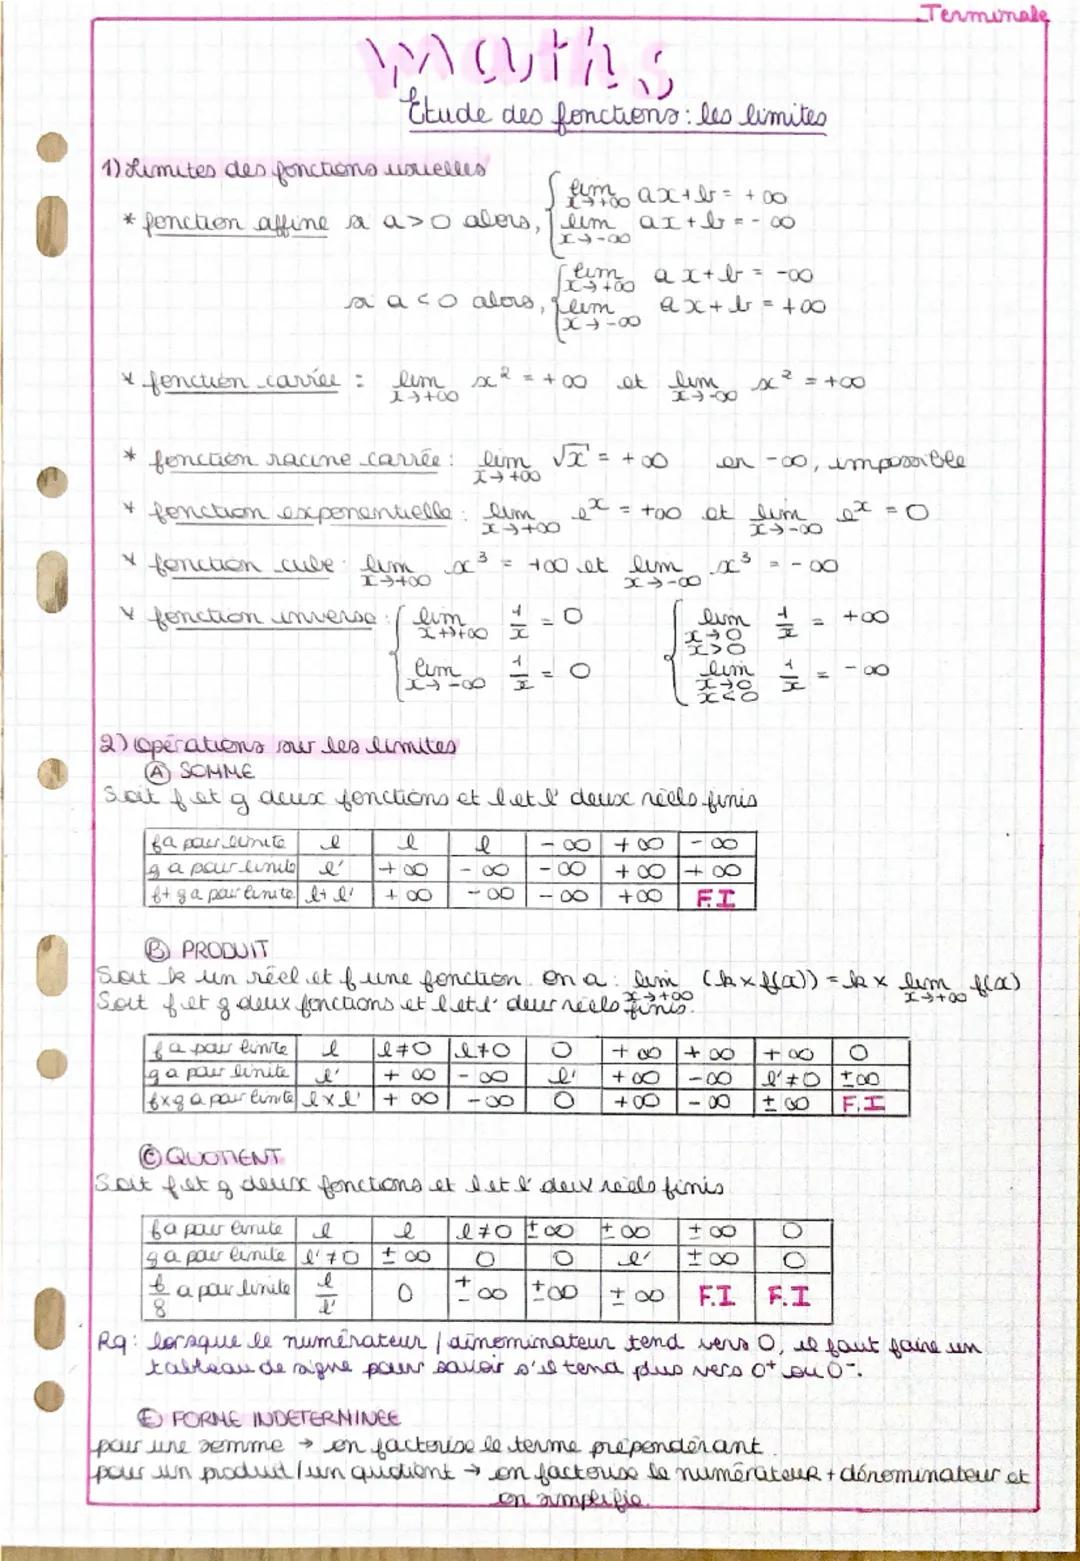 Terminale
maths
Étude des fonctions : les limites
1) Limites des fonctions usuelles
* fonction affine si a > 0 alors, { lim x→+∞ ax + b = +∞
lim x→-∞ ax + b = -∞
si a < 0 alors, { lim x→+∞ ax + b = -∞
lim x→-∞ ax + b = +∞
* fonction carrée : lim x→+∞ x² = +∞ et lim x→-∞ x² = +∞
* fonction racine carrée : lim x→+∞ √x = +∞ en -∞, impossible
* fonction exponentielle : lim x→+∞ e^x = +∞ et lim x→-∞ e^x = 0
* fonction cube : lim x→+∞ x³ = +∞ et lim x→-∞ x³ = -∞
* fonction inverse : { lim x→+∞ 1/x = 0 { lim x→0 x>0 1/x = +∞
lim x→-∞ 1/x = 0 lim x→0 x<0 1/x = -∞
2) Opérations sur les limites
Ⓐ SOMME
Soit f et g deux fonctions et l et l' deux réels finis
f a pour limite l l l -∞ +∞ -∞
g a pour limite l' +∞ -∞ -∞ +∞ +∞
f+g a pour limite l+l' +∞ -∞ -∞ +∞ F.I
Ⓑ PRODUIT
Soit k un réel et f une fonction. On a : lim x→+∞ (k×f(x)) = k × lim x→+∞ f(x)
Soit f et g deux fonctions et l et l' deux réels finis.
f a pour limite l l≠0 l≠0 0 +∞ +∞ +∞ 0
g a pour limite l' +∞ -∞ l' +∞ -∞ l'≠0 ±∞
f×g a pour limite l×l' +∞ -∞ 0 +∞ -∞ ±∞ F.I
Ⓒ QUOTIENT
Soit f et g deux fonctions et l et l' deux réels finis
f a pour limite l l l≠0 ±∞ ±∞ ±∞ 0
g a pour limite l'≠0 ±∞ 0 0 l' ±∞ 0
f/g a pour limite l/l' 0 ±∞ ±∞ ±∞ F.I F.I
Rq : lorsque le numérateur / dénominateur tend vers 0, il faut faire un
tableau de signe pour savoir s'il tend plus vers 0⁺ ou 0⁻.
Ⓔ FORME INDETERMINEE
pour une somme → on factorise le terme prépondérant.
pour un produit / un quotient → on factorise le numérateur + dénominateur et
on simplifie.